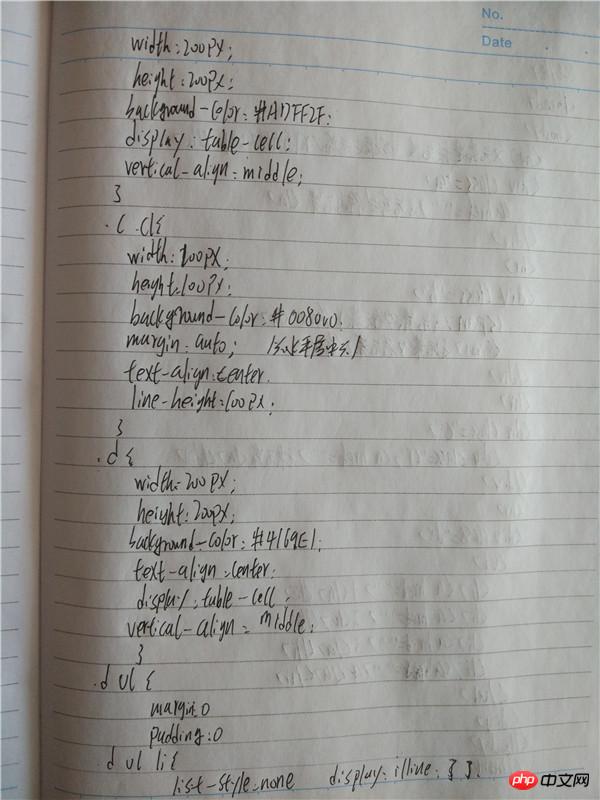 No.
Date
width:200px;
height:200px;
background-color:#ADFF2F;
display:table-cell;
vertical-align:middle;
}
.c .c1{
width:100px;
height:100px;
background-color:#008000;
margin:auto; /*水平居中*/
text-align:center.
line-height:100px;
}
.d{
width:200px;
height:200px;
background-color:#4169E1;
text-align:center;
display:table-cell;
vertical-align:middle;
}
.d ul{
margin:0
padding:0
d ul li{
list-style:none display:illine;} }.
php中文网